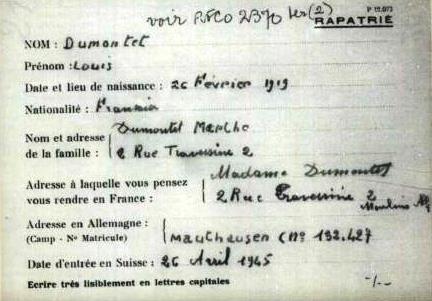 voir
P 12.073
RAPATRIÉ
NOM : Dumontet
Prénom : Louis
Date et lieu de naissance : 26 Février 1919
Nationalité :
Nom et adresse Dumontet Marthe
de la famille : 2 Rue Traversine 2
Adresse à laquelle vous pensez Madame Dumontet
vous rendre en France : 2 Rue Traversine 2
Moulins
Adresse en Allemagne :
(Camp - No Matricule) Mauthausen (No 132.427
Date d'entrée en Suisse : 26 Avril 1945
Ecrire très lisiblement en lettres capitales